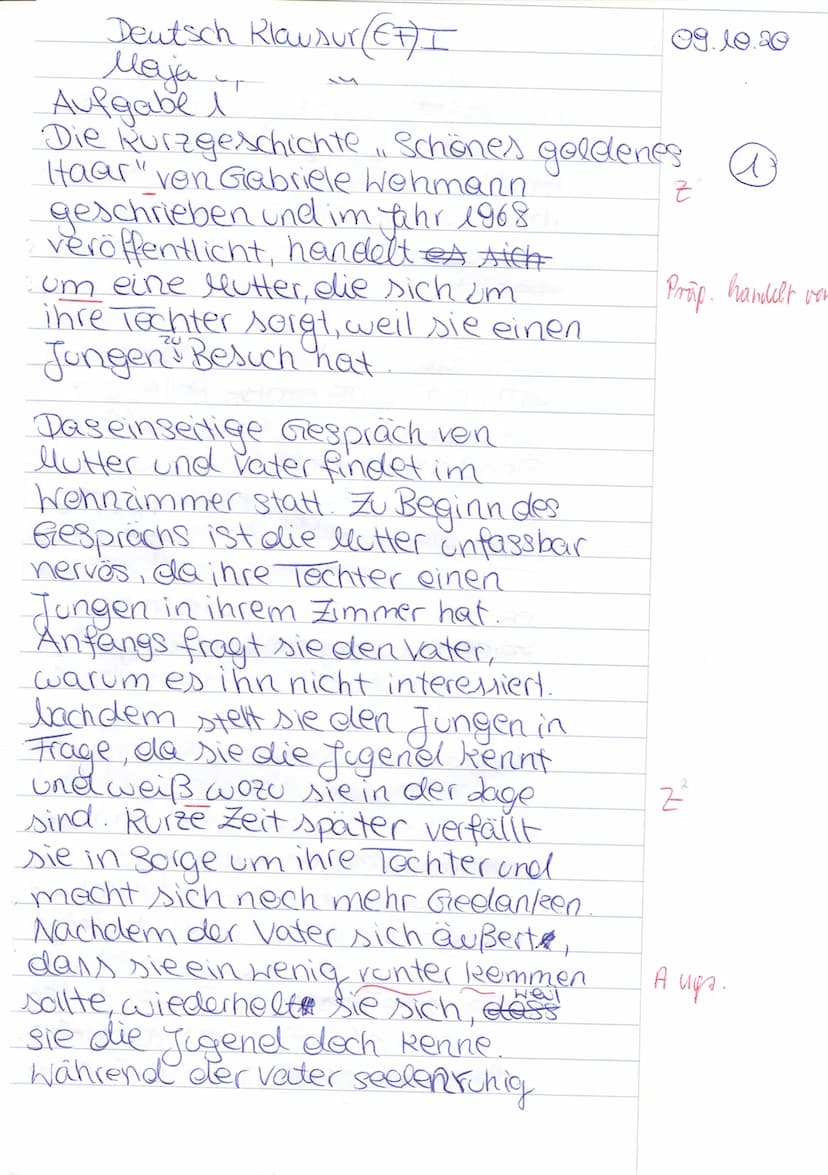 Deutsch Klausur (EF) I 09.10.20
Maja
Aufgabe 1
Die Kurzgeschichte „Schönes goldenes 1
Haar" von Gabriele Wohmann Z
geschrieben und im Jahr 1968
veröffentlicht, handelt es sich
um eine Mutter, die sich um Präp. handelt von
ihre Tochter sorgt, weil sie einen
Jungen zu Besuch hat.
Das einseitige Gespräch von
Mutter und Vater findet im
Wohnzimmer statt. Zu Beginn des
Gesprächs ist die Mutter unfassbar
nervös, da ihre Tochter einen
Jungen in ihrem Zimmer hat.
Anfangs fragt sie den Vater,
warum es ihn nicht interessiert.
Nachdem stellt sie den Jungen in
Frage, da sie die Jugend kennt
und weiß wozu sie in der Lage Z²
sind. Kurze Zeit später verfällt
sie in Sorge um ihre Tochter und
macht sich noch mehr Gedanken.
Nachdem der Vater sich äußert,
dass sie ein wenig runter kommen A ugs.
sollte, wiederholt sie sich, dass weil
sie die Jugend doch kenne.
Während der Vater seelenruhig